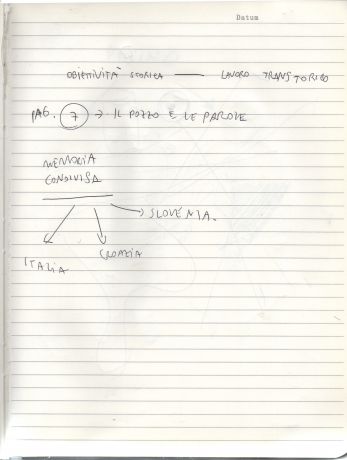 Datum
OBIETIVITÀ STORICA — LAVORO TRANSTORICO
PAG. 7 → IL POZZO E LE PAROLE
MEMORIA
CONDIVISA
SLOVENIA.
CROAZIA
ITALIA